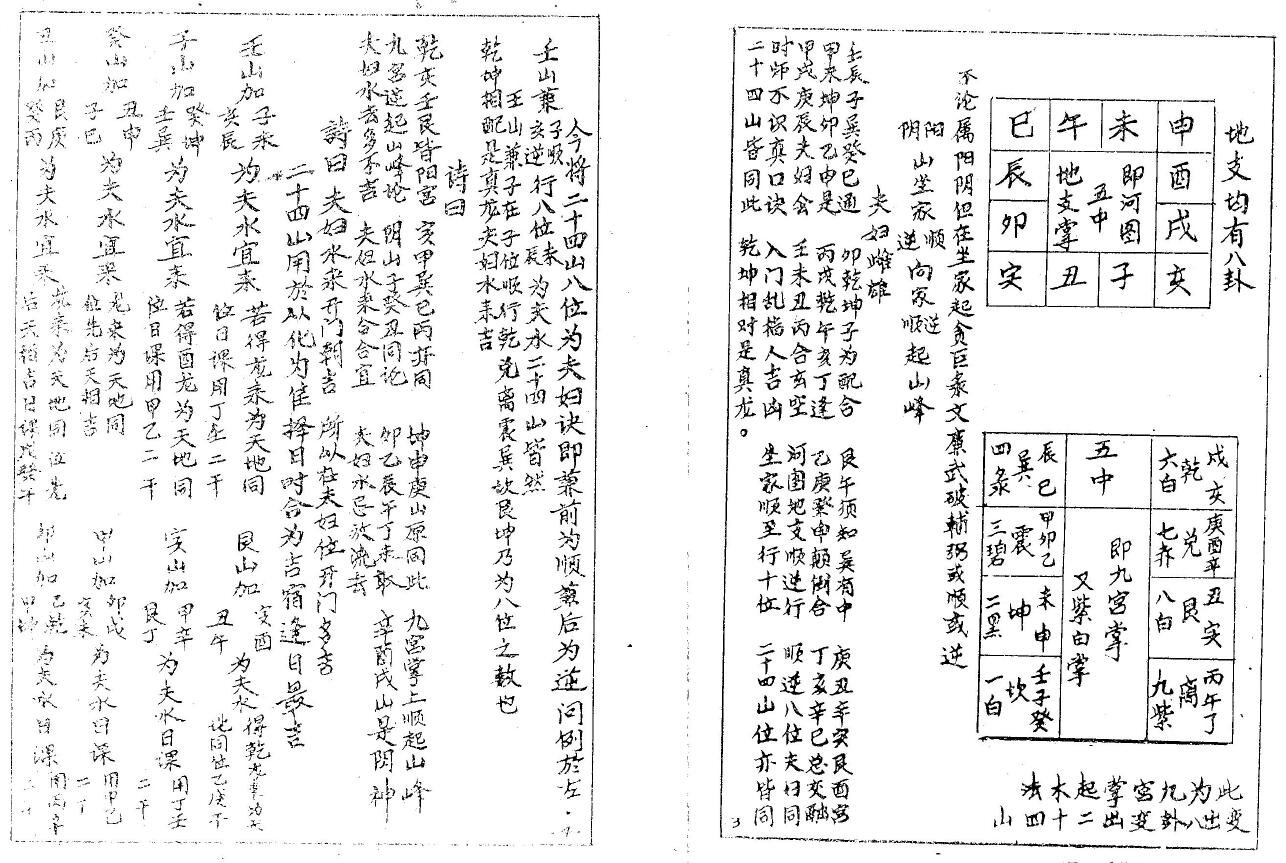 地支均有八卦
巳 午 未 申
辰 地支掌 五中 即河图 酉
卯 戌
寅 丑 子 亥
辰巳 巽 四彔 五中 戌亥 乾 六白
甲卯乙 震 三碧 即九宫掌 庚酉辛 兑 七赤
未申 坤 二黑 又紫白掌 丑寅 艮 八白
壬子癸 坎 一白 丙午丁 离 九紫
此变
为出
九八
宫卦
掌变
起出
木二
法十
四
山
不论属阳阴但在坐家起贪巨彔文廉武破輔弼或順或逆
阳阴山坐家順逆向家逆順起山峰
夫妇雌雄
壬辰子巽癸巳通 卯乾坤子为配合 艮午须知巽有中 庚丑辛寅艮酉宫
甲未坤卯乙申是 丙戌乾午亥丁逢 乙庚癸申顛倒合 丁亥辛巳总交融
甲戌庚辰夫妇会 壬未丑丙合玄空 河图地支順逆行 順逆八位夫妇同
时师不识真口诀 入门乱指人吉凶 坐家順至行十位 二十四山位亦皆同
二十四山皆同此 乾坤相对是真龙。
3
今将二十四山八位为夫妇诀即兼前为順兼后为逆问例於左
壬山兼子順亥逆行八位未辰为夫水二十四山皆然
壬山兼子在子位順行乾兑离震巽坎艮坤乃为八位之数也
乾坤相配是真龙夫妇水来吉
诗曰
乾亥壬艮皆阳宫 寅甲巽巳丙亦同 坤申庚山原同此 九宫掌上順起山峰
九宫逆起山峰论 阴山子癸丑同论 卯乙辰午丁未取 辛酉戌山是阴神
夫妇水去多不吉 夫但水来合合宜 夫妇水忌放流去
詩曰 夫妇水来开门朝吉 所以在夫妇位开门多吉
二十四山用於以化为隹择日时合为吉宿逢日最吉
壬山加子未亥辰为夫水宜来 若得龙来为天地同位日课用丁壬二干
子山加癸坤壬巽为夫水宜来 若得酉龙为天地同位日课用甲乙二干
癸山加丑申子巳为夫水宜来 龙来为天地同位先后天相吉
丑山加艮庚癸丙为夫水宜来 龙来为天地同位先后天相吉日课戊癸干
艮山加寅酉丑午为夫水 得乾龙来为天地同位乙庚干
寅山加甲辛艮丁为夫水日课 用丁壬二干
甲山加卯戌寅未为夫水日课 用甲己二干
卯山加乙乾甲坤为夫水日课